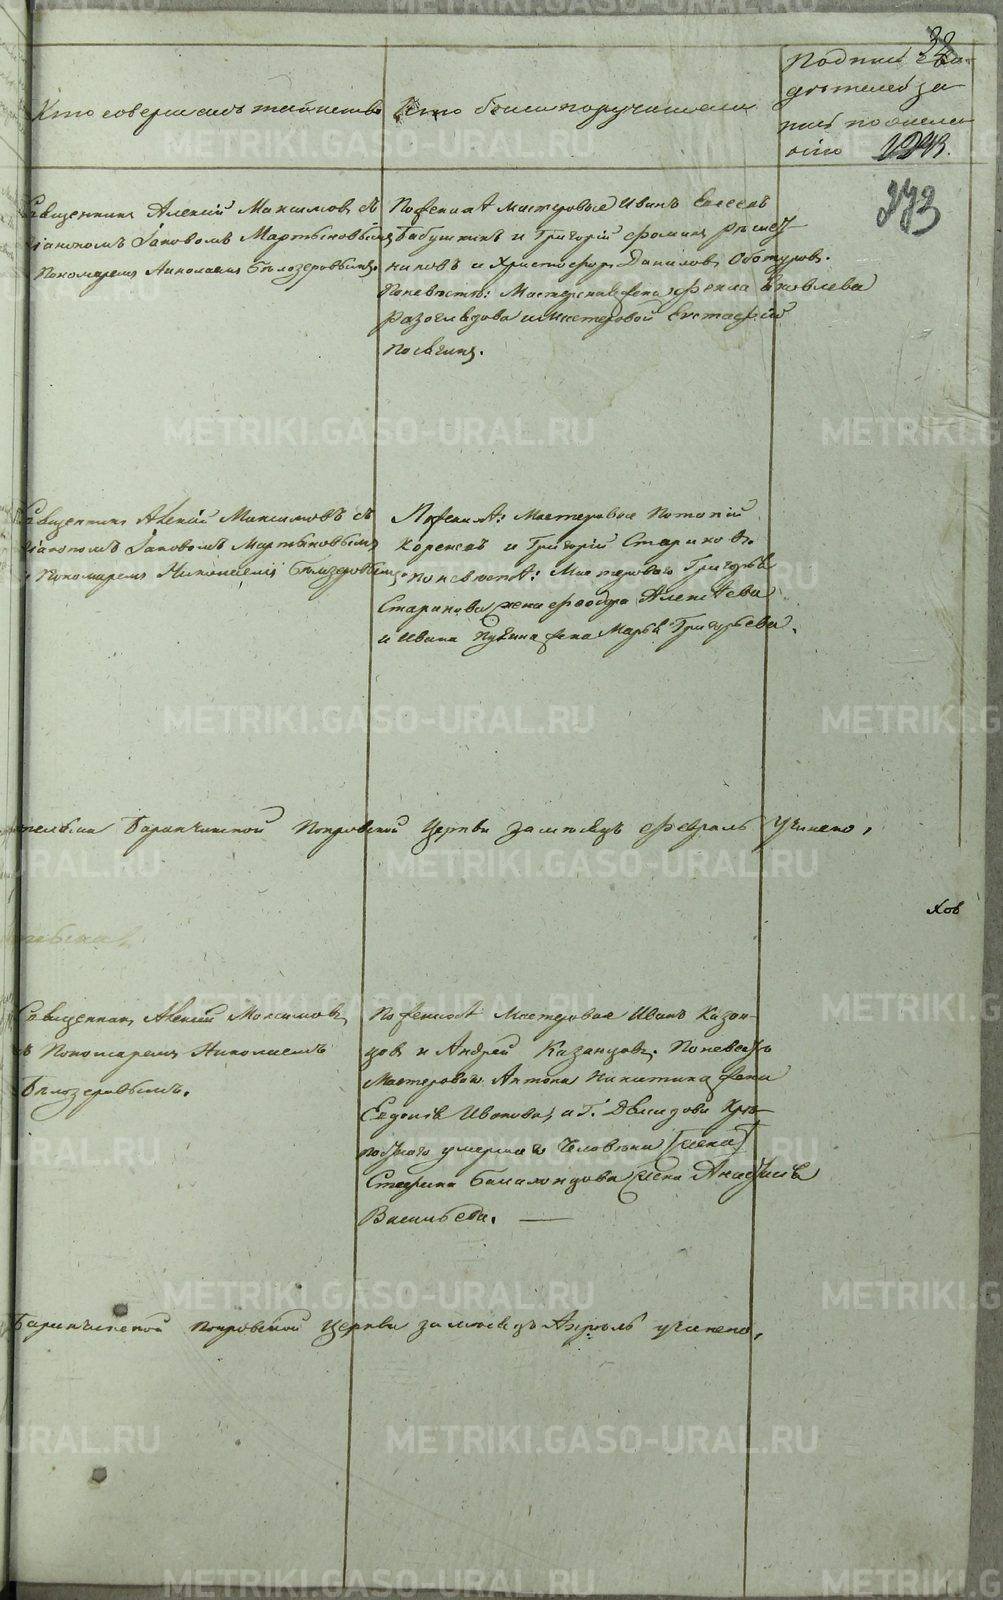 32
Кто совершалъ таинство
Кто были поручители
Подписи сви-
дѣтелей за
пись по желе
нію
1243.
273
Священникъ Алексій Максимовъ съ
діакономъ Іаковомъ Мартыновымъ
Пономаремъ Николаемъ Бѣлозеровымъ.
По женихѣ мастеровые Иванъ Евсеевъ
Бабушкинъ и Григорій Фоминъ Рѣшет
никовъ и Христофоръ Даниловъ Обатуровъ.
По невѣстѣ: Мастерская жена Фекла Яковлева
Разоглядова и мастеровой Евстафій
Посягинъ.
Священникъ Алексій Максимовъ съ
діакономъ Іаковомъ Мартыновымъ
и Пономаремъ Николаемъ Бѣлозеровымъ
По женихѣ: Мастеровые Потапій
Кореневъ и Григорій Стариковъ.
По невѣстѣ: Мастероваго Григорья
Старикова жена Феодора Алексѣева
и Ивана жена Марья Григорьева.
Баранчинской Покровской Церкви за мѣсяцъ февраль учинено,
хов
Священникъ Алексій Максимовъ
съ Пономаремъ Николаемъ
Бѣлозеровымъ.
По женихѣ Мастеровые Иванъ Казан-
цовъ и Андрей Казанцовъ. По невѣстѣ
Мастероваго Антона Никитина жена
Евдокія Иванова, и Г. Демидова Крѣ-
постного умершаго Человека [жена]
Стефана жена Анафилія
Васильева. —
Баранчинской Покровской Церкви за мѣсяцъ Апрѣль учинено,
METRIKI.GASO-URAL.RU